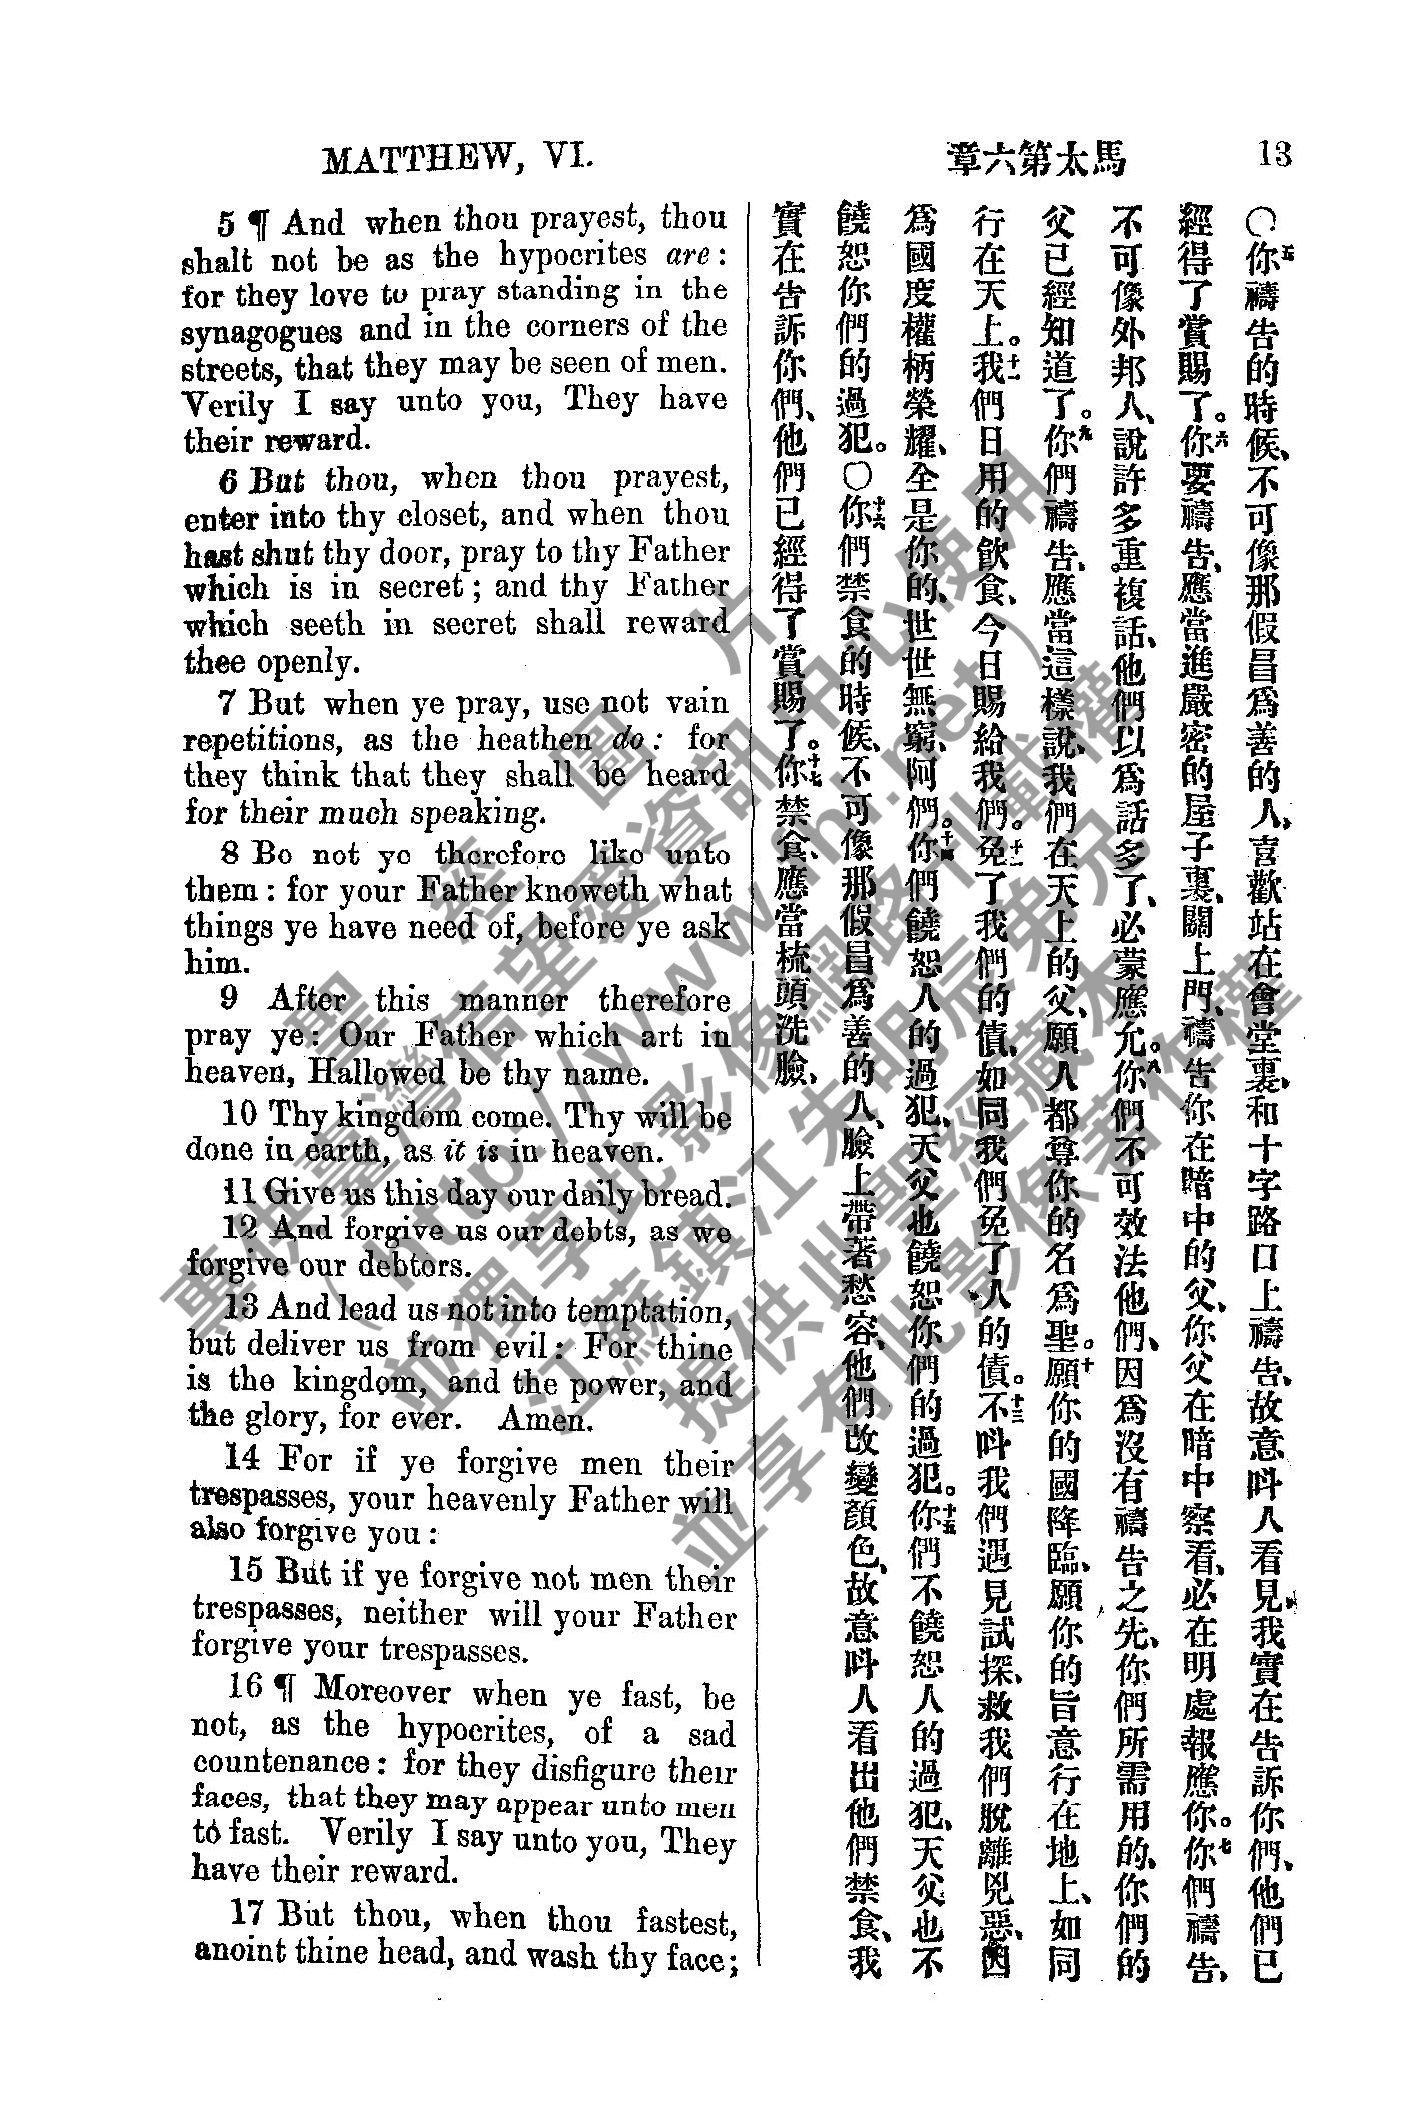 MATTHEW, VI.
章六第太馬
13
5 ¶ And when thou prayest, thou
shalt not be as the hypocrites are:
for they love to pray standing in the
synagogues and in the corners of the
streets, that they may be seen of men.
Verily I say unto you, They have
their reward.
6 But thou, when thou prayest,
enter into thy closet, and when thou
hast shut thy door, pray to thy Father
which is in secret; and thy Father
which seeth in secret shall reward
thee openly.
7 But when ye pray, use not vain
repetitions, as the heathen do: for
they think that they shall be heard
for their much speaking.
8 Be not ye therefore like unto
them: for your Father knoweth what
things ye have need of, before ye ask
him.
9 After this manner therefore
pray ye: Our Father which art in
heaven, Hallowed be thy name.
10 Thy kingdom come. Thy will be
done in earth, as it is in heaven.
11 Give us this day our daily bread.
12 And forgive us our debts, as we
forgive our debtors.
13 And lead us not into temptation,
but deliver us from evil: For thine
is the kingdom, and the power, and
the glory, for ever. Amen.
14 For if ye forgive men their
trespasses, your heavenly Father will
also forgive you:
15 But if ye forgive not men their
trespasses, neither will your Father
forgive your trespasses.
16 ¶ Moreover when ye fast, be
not, as the hypocrites, of a sad
countenance: for they disfigure their
faces, that they may appear unto men
to fast. Verily I say unto you, They
have their reward.
17 But thou, when thou fastest,
anoint thine head, and wash thy face;
〇你五禱告的時候、不可像那假冒爲善的人、喜歡站在會堂裏、和十字路口上禱告、故意呌人看見、我實在告訴你們、他們已
經得了賞賜了。你六要禱告、應當進嚴密的屋子裏、關上門、禱告你在暗中的父、你父在暗中察看、必在明處報應你。你七們禱告、
不可像外邦人、說許多重複話、他們以爲話多了、必蒙應允。你八們不可效法他們、因爲沒有禱告之先、你們所需用的、你們的
父已經知道了。你九們禱告、應當這樣說、我們在天上的父、願人都尊你的名爲聖。願十你的國降臨、願你的旨意行在地上、如同
行在天上。我十一們日用的飲食、今日賜給我們。免十二了我們的債、如同我們免了人的債。不十三呌我們遇見試探、救我們脫離兇惡、因
爲國度權柄榮耀、全是你的、世世無窮、阿們。你十四們饒恕人的過犯、天父也饒恕你們的過犯。你十五們不饒恕人的過犯、天父也不
饒恕你們的過犯。〇你十六們禁食的時候、不可像那假冒爲善的人、臉上帶著愁容、他們改變顏色、故意呌人看出他們禁食、我
實在告訴你們、他們已經得了賞賜了。你十七禁食、應當梳頭洗臉、